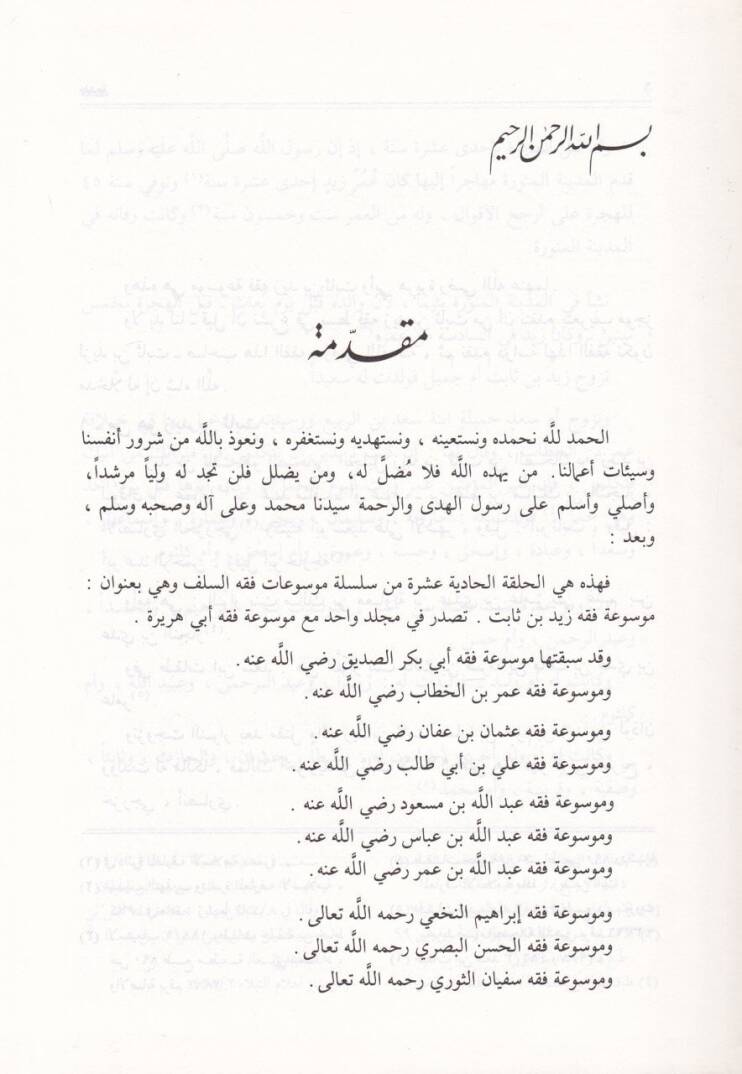 بسم الله الرحمن الرحيم
مقدّمة
الحمد للَّه نحمده ونستعينه ، ونستهديه ونستغفره ، ونعوذ باللَّه من شرور أنفسنا
وسيئات أعمالنا. من يهده اللَّه فلا مُضلَّ له، ومن يضلل فلن تجد له ولياً مرشداً،
وأصلي وأسلم على رسول الهدى والرحمة سيدنا محمد وعلى آله وصحبه وسلم ،
وبعد :
فهذه هي الحلقة الحادية عشرة من سلسلة موسوعات فقه السلف وهي بعنوان :
موسوعة فقه زيد بن ثابت . تصدر في مجلد واحد مع موسوعة فقه أبي هريرة .
وقد سبقتها موسوعة فقه أبي بكر الصديق رضي اللَّه عنه.
وموسوعة فقه عمر بن الخطاب رضي اللَّه عنه.
وموسوعة فقه عثمان بن عفان رضي اللَّه عنه.
وموسوعة فقه علي بن أبي طالب رضي اللَّه عنه.
وموسوعة فقه عبد اللَّه بن مسعود رضي اللَّه عنه .
وموسوعة فقه عبد اللَّه بن عباس رضي اللَّه عنه.
وموسوعة فقه عبد اللَّه بن عمر رضي اللَّه عنه.
وموسوعة فقه إبراهيم النخعي رحمه اللَّه تعالى.
وموسوعة فقه الحسن البصري رحمه اللَّه تعالى.
وموسوعة فقه سفيان الثوري رحمه اللَّه تعالى.